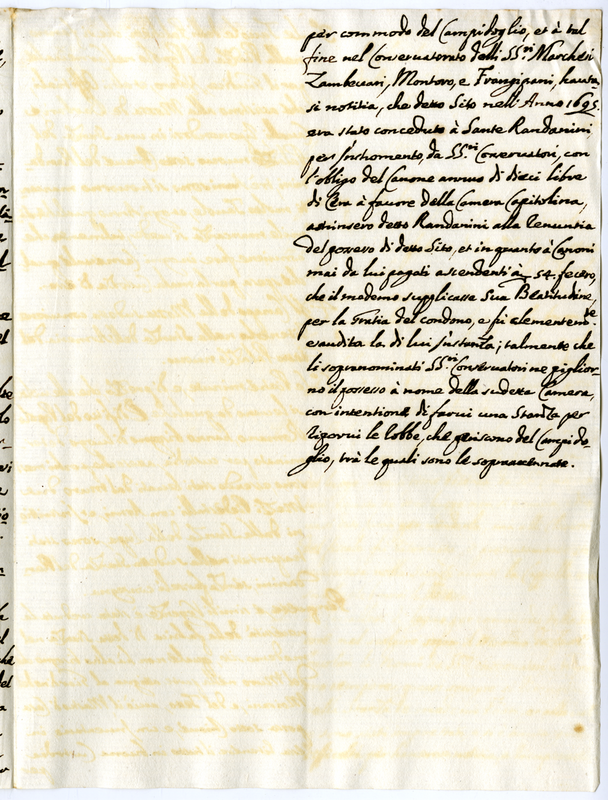 per commodo del Campidoglio, et à tal
fine nel Conservatorato delli SS.ri Marchesi
Zambeccari, Montoro, e Frangipani, havuta-
si notitia, che detto Sito nell'Anno 1695.
era stato conceduto à Sante Randanini
per Instromento, da SS.ri Conservatori, con
l'obligo del Canone annuo di dieci libre
di Cera à favore della Camera Capitolina,
astrinsero detto Randanini alla renuntia
del possesso di detto Sito, et in quanto à Canoni
mai da lui pagati ascendenti à 54. fecero,
che il medemo supplicasse Sua Beatitudine,
per la Gratia del condono, e fù clementem.te
esaudita la di lui Instanza; talmente che
li sopranominati SS.ri Conservatori ne pigliorno
il possesso à nome della sudetta Camera,
con intentione di farvi una Stanza per
riporvi le robbe, che del Campido-
glio, trà le quali sono le sopraaccennate.